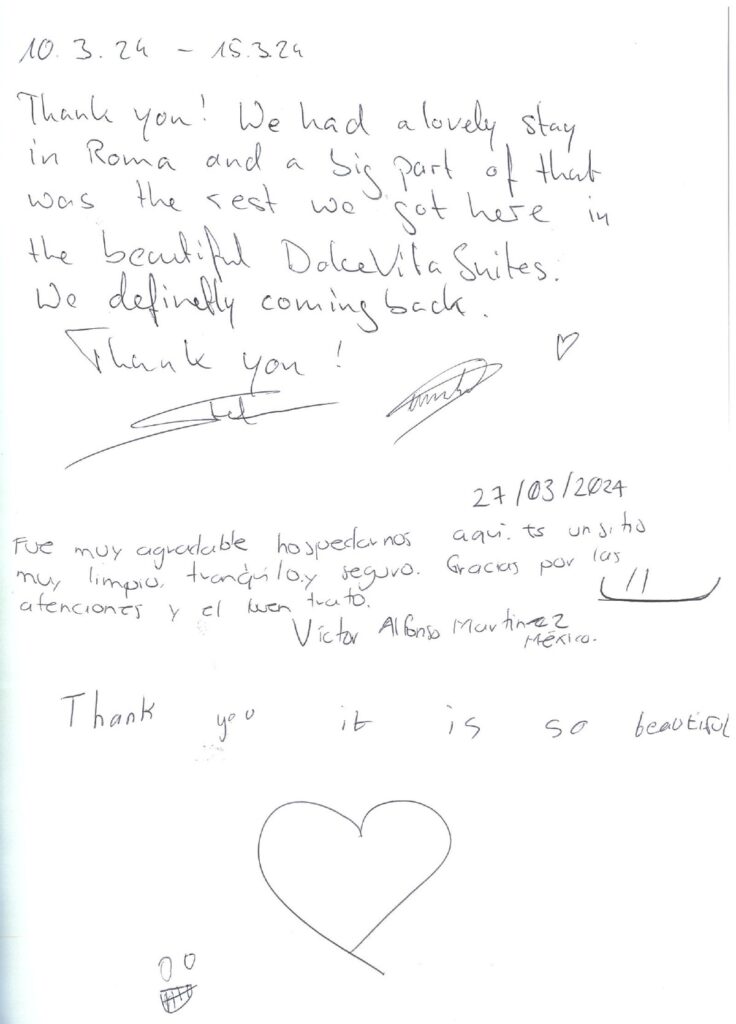 10.3.24 - 15.3.24
Thank you! We had a lovely stay
in Roma and a big part of that
was the rest we got here in
the beautiful DolceVita Suites.
We definetly coming back.
Thank you!
27/03/2024
Fue muy agradable hospedarnos aquí. Es un sitio
muy limpio, tranquilo y seguro. Gracias por las
atenciones y el buen trato.
Víctor Alfonso Martinez
México.
Thank you it is so beautiful